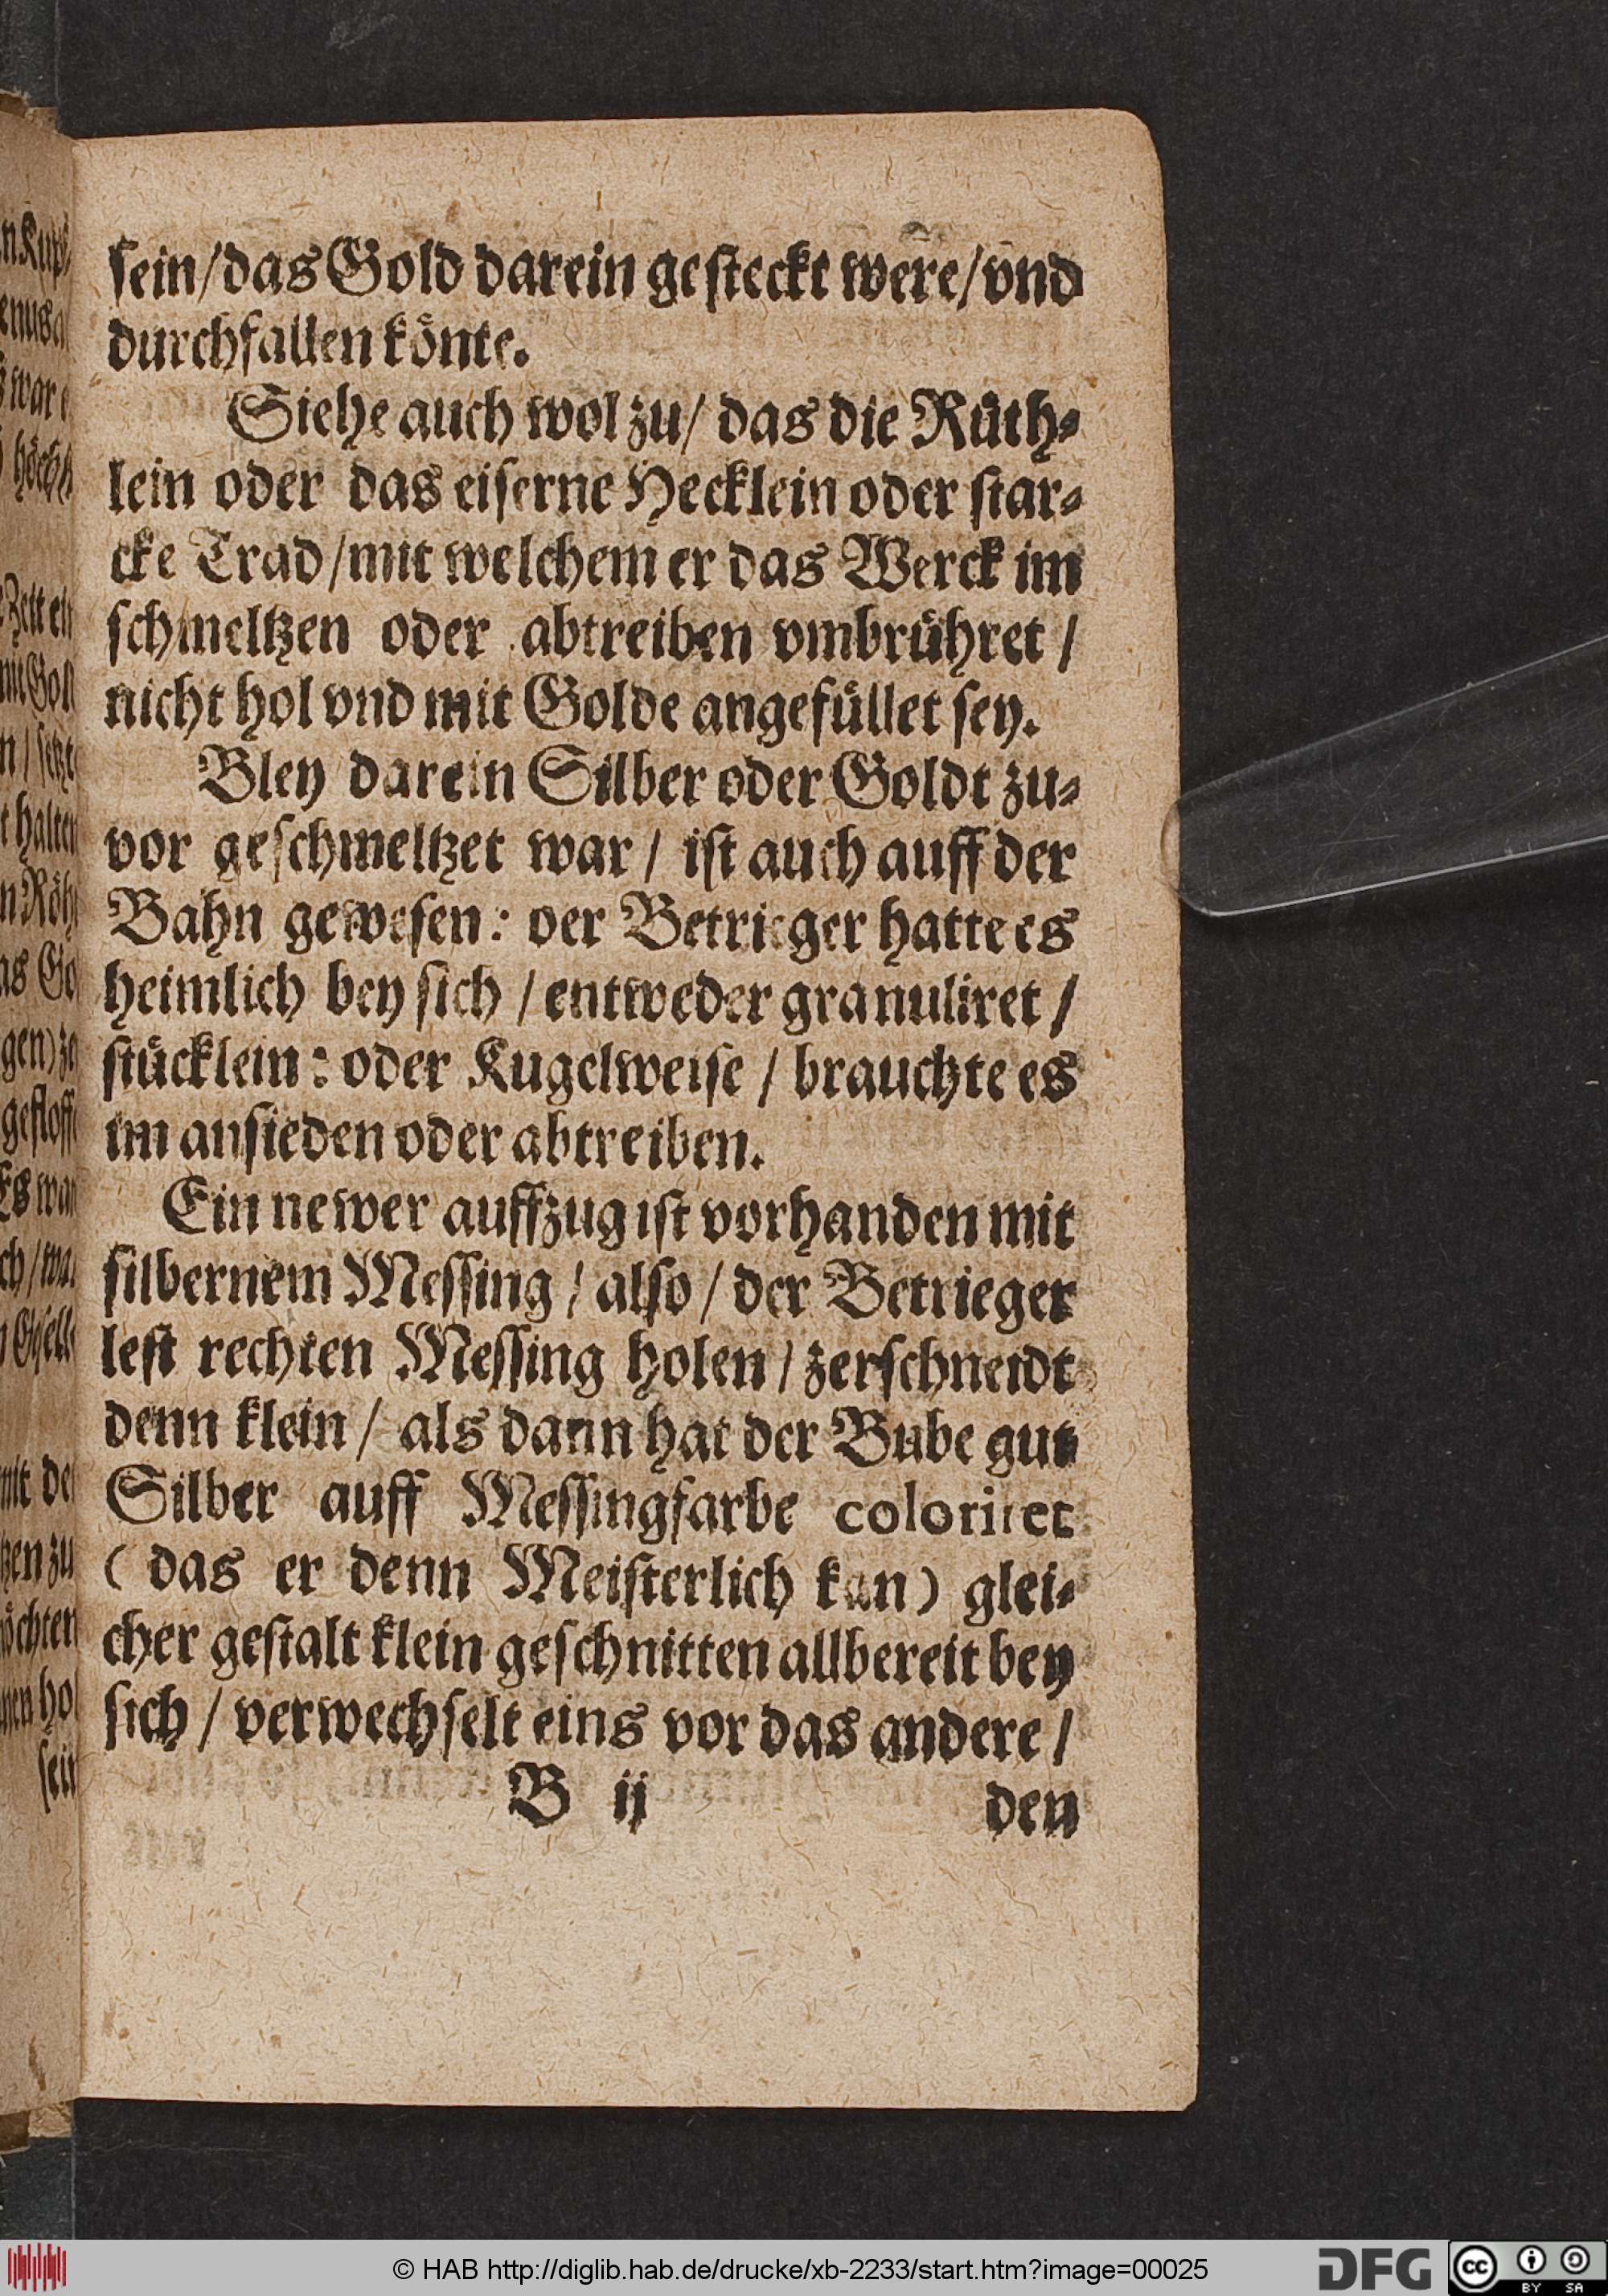 sein/das Gold darein gesteckt were/vnd
durchfallen könte.
Siehe auch wol zu/ das die Rüth-
lein oder das eiserne Hecklein oder star-
cke Trad/mit welchem er das Werck im
schmeltzen oder abtreiben vmbrühret /
nicht hol vnd mit Golde angefüllet sey.
Bley darein Silber oder Goldt zu-
vor geschmeltzet war / ist auch auff der
Bahn gewesen: der Betrieger hatte es
heimlich bey sich / entweder granuliret /
stücklein: oder Kugelweise / brauchte es
im ansieden oder abtreiben.
Ein newer auffzug ist vorhanden mit
silbernem Messing / also / der Betrieger
lest rechten Messing holen / zerschneidt
denn klein / als dann hat der Bube gut
Silber auff Messingfarbe coloriret
( das er denn Meisterlich kan) glei-
cher gestalt klein geschnitten allbereit bey
sich / verwechselt eins vor das andere /
B ij den
© HAB http://diglib.hab.de/drucke/xb-2233/start.htm?image=00025
DFG
cc BY SA